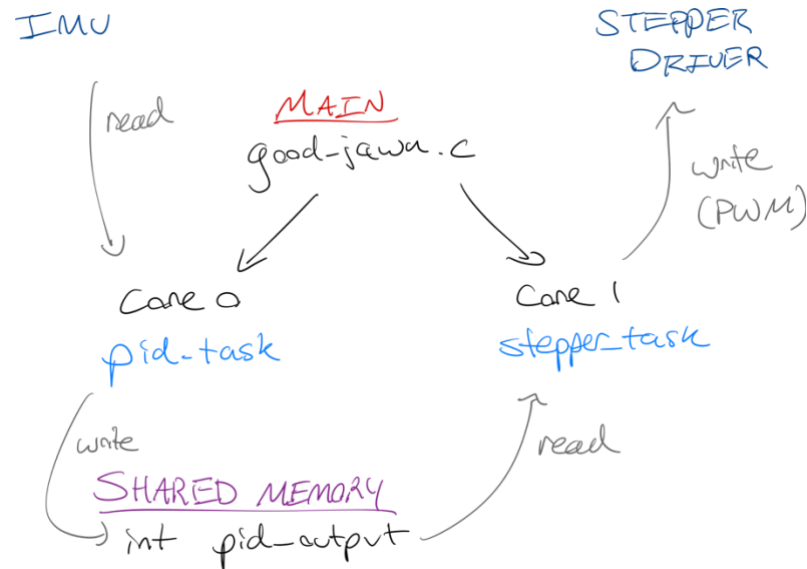 IMU
STEPPER
DRIVER
read
MAIN
good-jawn.c
write
(PWM)
Core 0
Core 1
pid-task
stepper_task
write
read
SHARED MEMORY
int pid_output